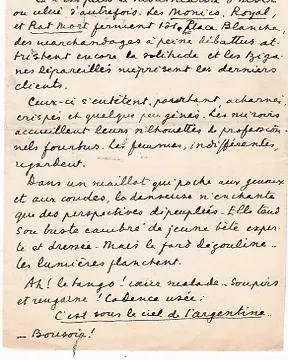 ou celui d'autrefois. Les Monico, Royal,
et Rat Mort ferment tôt. Place Blanche,
des marchandages à peine débattus at-
tristent encore la solitude et les tziga-
nes dépareillés méprisent les derniers
clients.
Ceux-ci s'entêtent, pourtant, acharnés,
crispés et quelque peu gênés. Les miroirs
accueillent leurs silhouettes de profession-
nels fourbus. Les femmes, indifférentes,
regardent.
Dans un maillot qui poche aux genoux
et aux coudes, la danseuse n'enchante
que des perspectives dépeuplées. Elle tend
son buste cambré de jeune bête exper-
te et dressée. Mais le fard dégouline..
les lumières flanchent.
Ah! le tango! valse malade.. Soupirs
et rengaine! Cadence usée:
C'est sous le ciel de l'argentine..
— Bonsoir!